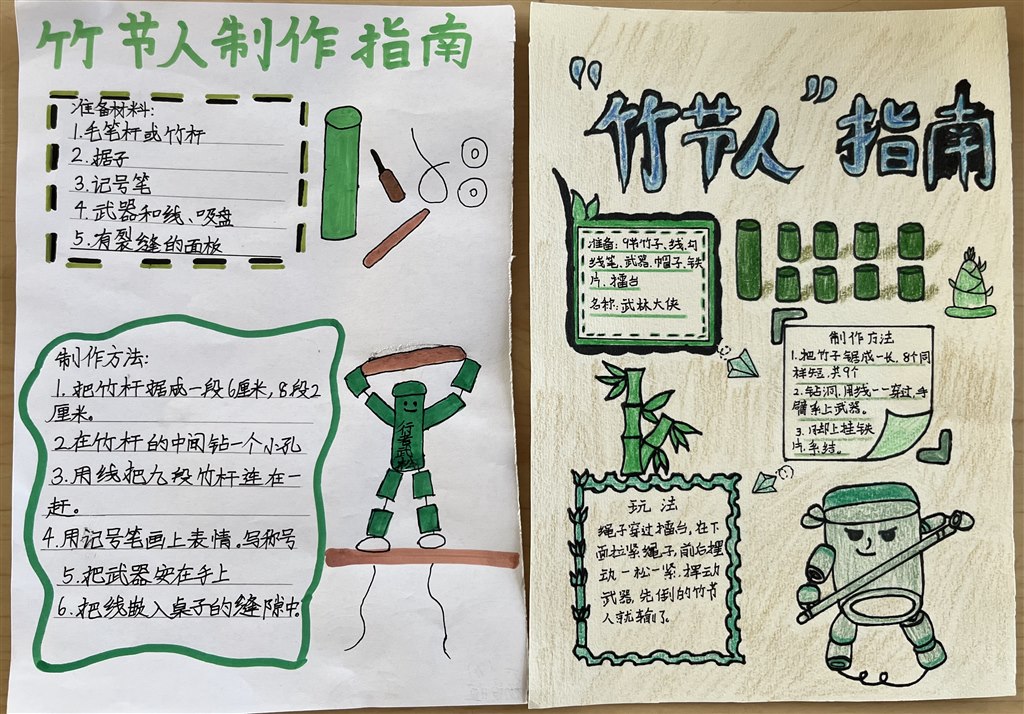 竹节人制作指南
准备材料:
1.毛笔杆或竹杆
2.据子
3.记号笔
4.武器和线、吸盘
5.有裂缝的面板
制作方法:
1.把竹杆据成一段6厘米,8段2
厘米。
2.在竹杆的中间钻一个小孔
3.用线把九段竹杆连在一
赶。
4.用记号笔画上表情.写称号
5.把武器安在手上
6.把线嵌入桌子的缝隙中.
行者武松
“竹节人”指南
准备:9节竹子、线、勾
线笔、武器、帽子、铁
片、擂台
名称:武林大侠
制作方法
1.把竹子锯成一长,8个同
样短,共9个
2.钻洞,用线一一穿过,手
臂系上武器。
3.脚上挂铁
片,系结。
玩法
绳子穿过擂台,在下
面拉紧绳子,前右摆
动一松一紧.挥动
武器,先倒的竹节
人就输了。